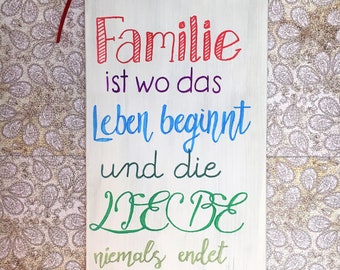 Familie
ist wo das
Leben beginnt
und die
LIEBE
niemals endet